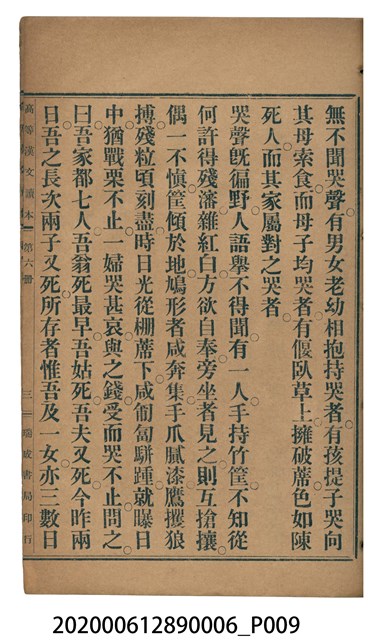 無不聞哭聲。有男女老幼相抱持哭者。有孩提子哭向
其母索食。而母子均哭者。有偃臥草上。擁破蓆。色如陳
死人。而其家屬對之哭者。
哭聲既徧野。人語舉不得聞。有一人手持竹筐。不知從
何許得殘瀋。雜紅白。方欲自奉。旁坐者見之。則互搶攘。
偶一不愼。筐傾於地。鳩形者咸奔集。手爪膩漆。鷹攫狼
搏。殘粒頃刻盡。時日光從棚蓆下。咸匍匐駢踵就曝日
中。猶戰栗不止。一婦哭甚哀。與之錢。受而哭不止。問之。
曰。吾家都七人。吾翁死最早。吾姑死。吾夫又死。今昨兩
日。吾之長次兩子又死。所存者惟吾及一女。亦三數日
高等漢文讀本 第六册
三
瑞成書局印行
202000612890006_P009